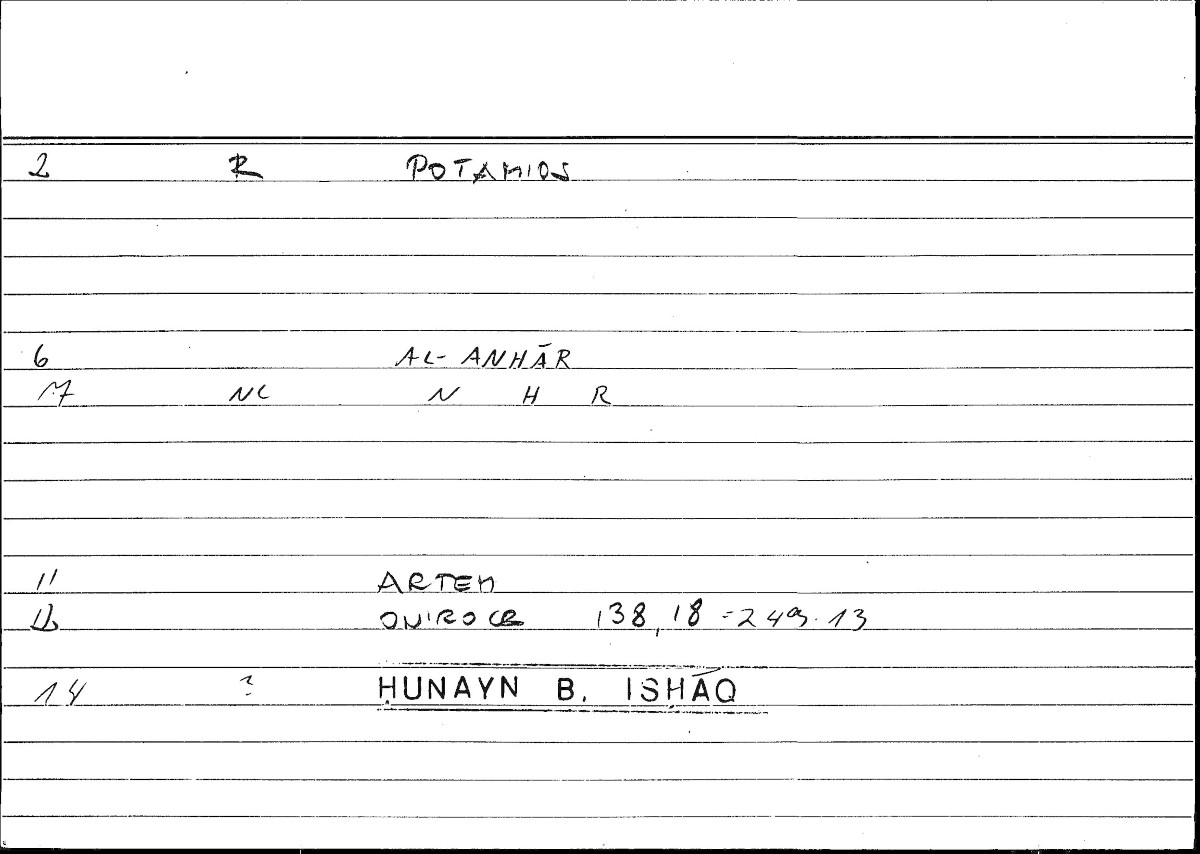 2 R POTAMIOS
6 AL-ANHĀR
7 NC N H R
11 ARTEM
12 ONIROCR 138,18 = 249.13
14 ? ḤUNAYN B. ISḤĀQ